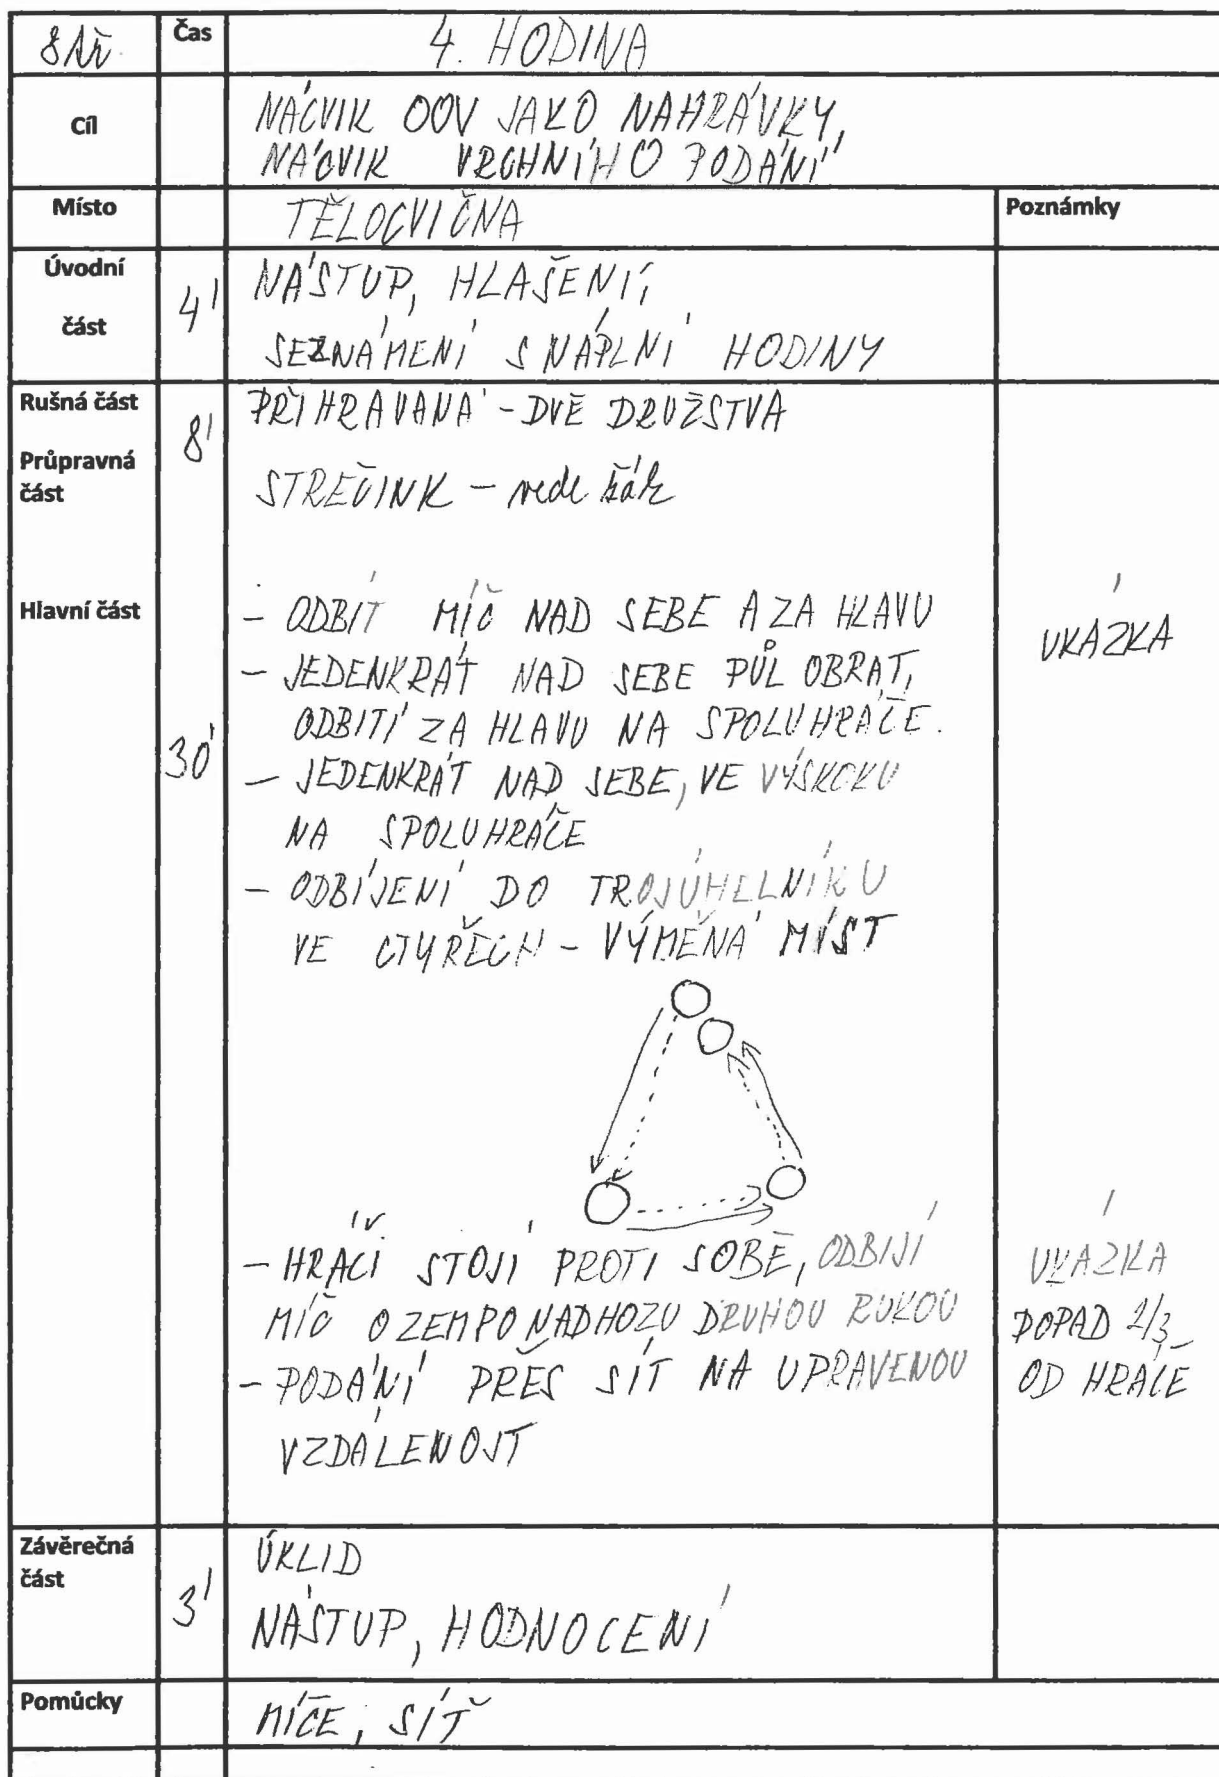 Čas 4. HODINA
Cíl NÁCVIK OOV JAKO NAHRÁVKY,
NÁCVIK VRCHNÍHO PODÁNÍ
Místo TĚLOCVIČNA Poznámky
Úvodní
část
4' NÁSTUP, HLAŠENÍ,
SEZNÁMENÍ S NÁPLNÍ HODINY
Rušná část
Průpravná
část
8' PŘIHRÁVANÁ - DVĚ DRUŽSTVA
STREČINK - vede žák
Hlavní část
30'
- ODBÍT MÍČ NAD SEBE A ZA HLAVU
UKÁZKA
- JEDENKRÁT NAD SEBE PŮL OBRAT,
ODBITÍ ZA HLAVU NA SPOLUHRÁČE.
- JEDENKRÁT NAD SEBE, VE VÝSKOKU
NA SPOLUHRÁČE
- ODBÍJENÍ DO TROJÚHELNÍKU
VE ČTYŘECH - VÝMĚNA MÍST
- HRÁČI STOJÍ PROTI SOBĚ, ODBIJÍ
MÍČ O ZEM PO NADHOZU DRUHOU RUKOU
- PODÁNÍ PŘES SÍŤ NA UPRAVENOU
VZDÁLENOST
UKÁZKA
DOPAD 2/3
OD HRÁČE
Závěrečná
část
3' ÚKLID
NÁSTUP, HODNOCENÍ
Pomůcky MÍČE, SÍŤ